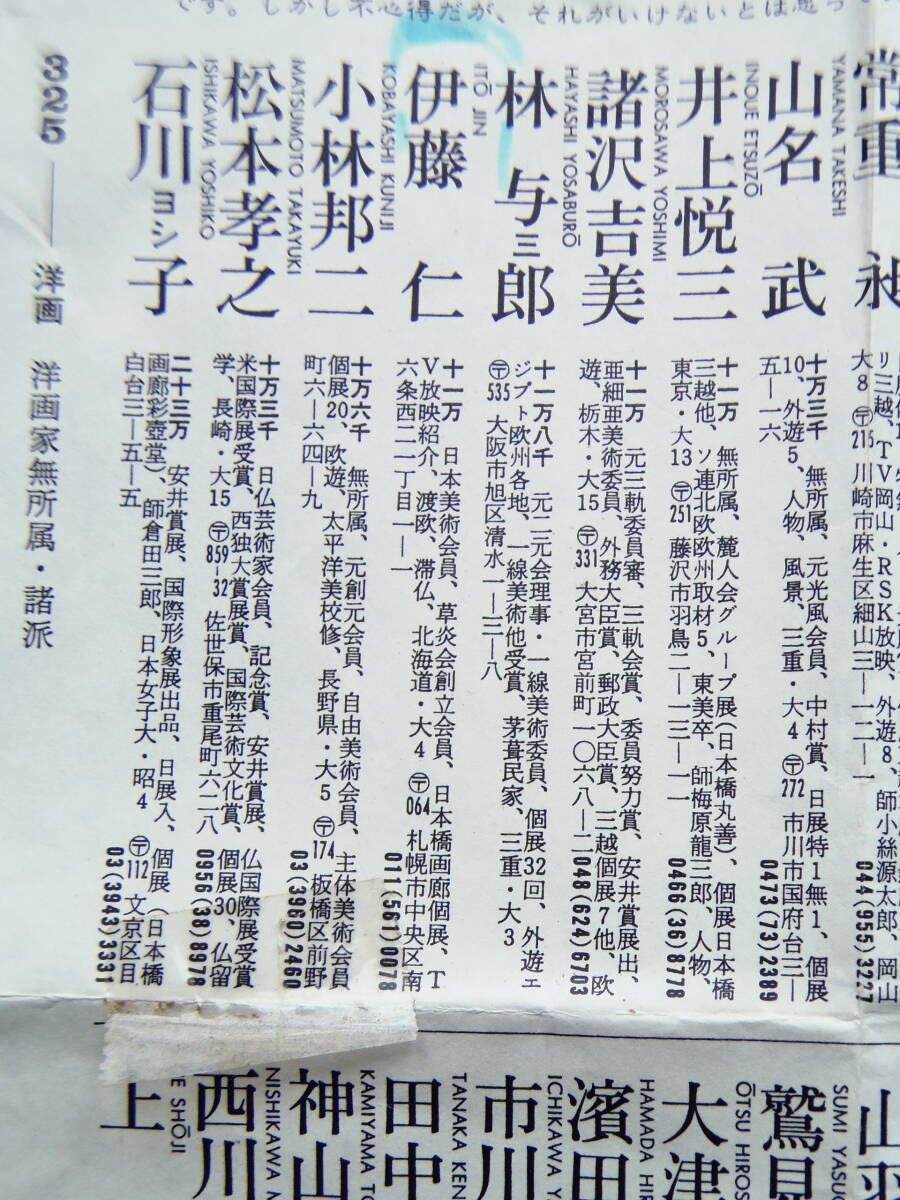 です。しかし不心得だが、それがいけないとは思っ
常重 昶
リ三越、TV岡山・RSK放映、外遊8、師小絲源太郎、岡山
大8 〒215 川崎市麻生区細山三―一二―一
044(955)3227
YAMANA TAKESHI
山名 武
十万三千 無所属、元光風会員、中村賞、日展特1無1、個展
10、外遊5、人物、風景、三重・大4 〒272 市川市国府台三―
五―一六
0473(73)2389
INOUE ETSUZŌ
井上悦三
十一万 無所属、麓人会グループ展(日本橋丸善)、個展日本橋
三越他、ソ連北欧欧州取材5、東美卒、師梅原龍三郎、人物、
東京・大13 〒251 藤沢市羽鳥二―一三―一一
0466(36)8778
MOROSAWA YOSHIMI
諸沢吉美
十一万 元三軌委員審、三軌会賞、委員努力賞、安井賞展出、
亜細亜美術委員、外務大臣賞、郵政大臣賞、三越個展7他、欧
遊、栃木・大15 〒331 大宮市宮前町一〇六八―二
048(624)6703
HAYASHI YOSABURŌ
林 与三郎
十一万八千 元二元会理事・一線美術委員、個展32回、外遊エ
ジプト欧州各地、一線美術他受賞、茅葺民家、三重・大3
〒535 大阪市旭区清水一―三―八
ITŌ JIN
伊藤 仁
十一万 日本美術会員、草炎会創立会員、日本橋画廊個展、T
V放映紹介、渡欧、滞仏、北海道・大4 〒064 札幌市中央区南
六条西二一丁目一―一
011(561)0078
KOBAYASHI KUNIJI
小林邦二
十万六千 無所属、元創元会員、自由美術会員、主体美術会員
個展20、欧遊、太平洋美校修、長野県・大5 〒174 板橋区前野
町六―六四―九
03(3960)2460
MATSUMOTO TAKAYUKI
松本孝之
十万三千 日仏芸術家会員、記念賞、安井賞展、仏国際展受賞
米国際展受賞、西独大賞展賞、国際芸術文化賞、個展30、仏留
学、長崎・大15 〒859-32 佐世保市重尾町六二八
0956(38)8978
ISHIKAWA YOSHIKO
石川ヨシ子
二十三万 安井賞展、国際形象展出品、日展入、個展(日本橋
画廊彩壺堂)、師倉田三郎、日本女子大・昭4 〒112 文京区目
白台三―五―五
03(3943)3331
325 ―― 洋画 洋画家無所属・諸派
SUMI YASU
鷲見
ŌTSU HIROS
大津
HAMADA HIR
濱田
ICHIKAWA Y
市川
TANAKA KEN
田中
KAMIYAMA TO
神山
NISHIKAWA
西川
E SHŌJI
上